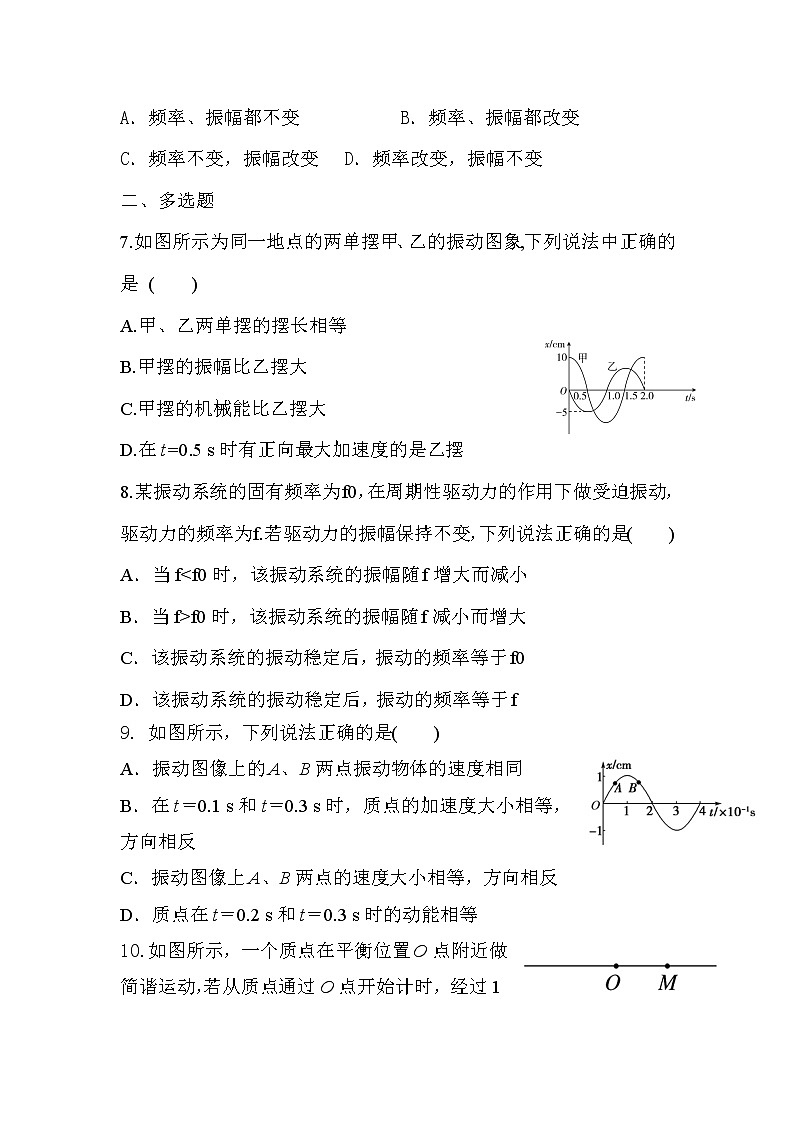 A．频率、振幅都不变 B．频率、振幅都改变
C．频率不变，振幅改变 D．频率改变，振幅不变
二、多选题
7.如图所示为同一地点的两单摆甲、乙的振动图象,下列说法中正确的
是 ( )
A.甲、乙两单摆的摆长相等
B.甲摆的振幅比乙摆大
C.甲摆的机械能比乙摆大
D.在 t=0.5 s 时有正向最大加速度的是乙摆
x/cm
10 甲 乙
O 0.5 1.0 1.5 2.0 t/s
−5
8.某振动系统的固有频率为f0，在周期性驱动力的作用下做受迫振动，
驱动力的频率为f.若驱动力的振幅保持不变，下列说法正确的是( )
A．当 f<f0 时，该振动系统的振幅随 f 增大而减小
B．当 f>f0 时，该振动系统的振幅随 f 减小而增大
C．该振动系统的振动稳定后，振动的频率等于 f0
D．该振动系统的振动稳定后，振动的频率等于 f
9. 如图所示，下列说法正确的是( )
A．振动图像上的A、B 两点振动物体的速度相同
B．在 t＝0.1 s 和 t＝0.3 s 时，质点的加速度大小相等，
方向相反
C．振动图像上A、B 两点的速度大小相等，方向相反
D．质点在 t＝0.2 s 和 t＝0.3 s 时的动能相等
x/cm
1 A B
O 1 2 3 4 t/×10⁻¹s
−1
10.如图所示，一个质点在平衡位置O 点附近做
简谐运动，若从质点通过 O 点开始计时，经过 1
O M